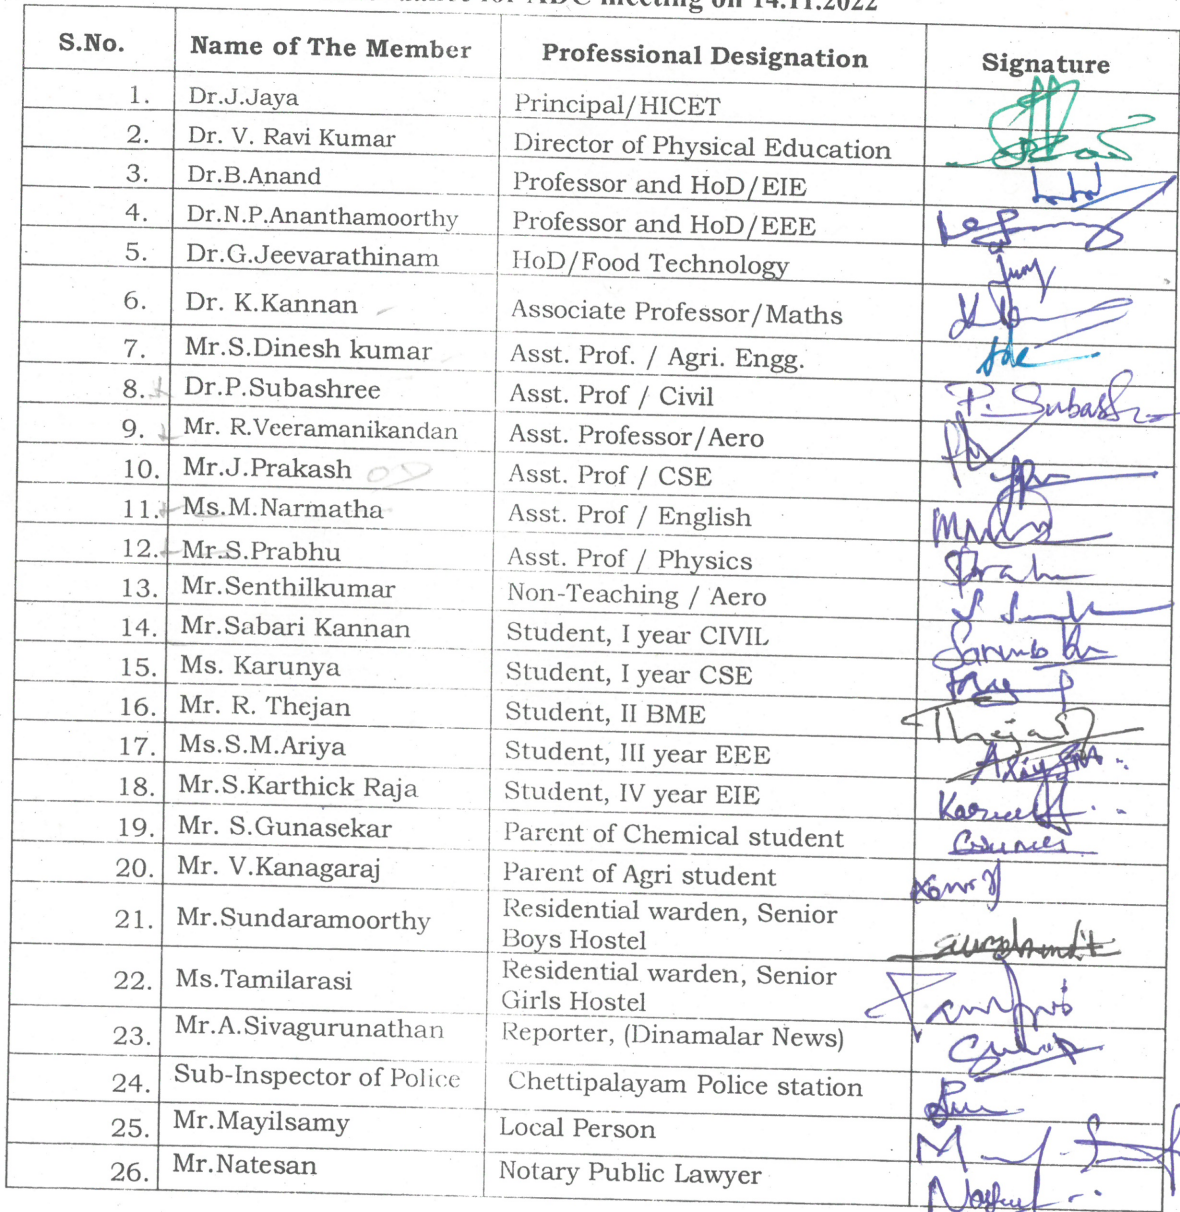 for ADC meeting on 14.11.2022
S.No. Name of The Member Professional Designation Signature
1. Dr.J.Jaya Principal/HICET
2. Dr. V. Ravi Kumar Director of Physical Education
3. Dr.B.Anand Professor and HoD/EIE
4. Dr.N.P.Ananthamoorthy Professor and HoD/EEE
5. Dr.G.Jeevarathinam HoD/Food Technology
6. Dr. K.Kannan Associate Professor/Maths
7. Mr.S.Dinesh kumar Asst. Prof. / Agri. Engg.
8. Dr.P.Subashree Asst. Prof / Civil P. Subash
9. Mr. R.Veeramanikandan Asst. Professor/Aero
10. Mr.J.Prakash Asst. Prof / CSE
11. Ms.M.Narmatha Asst. Prof / English
12. Mr.S.Prabhu Asst. Prof / Physics
13. Mr.Senthilkumar Non-Teaching / Aero
14. Mr.Sabari Kannan Student, I year CIVIL
15. Ms. Karunya Student, I year CSE
16. Mr. R. Thejan Student, II BME Thejan
17. Ms.S.M.Ariya Student, III year EEE
18. Mr.S.Karthick Raja Student, IV year EIE
19. Mr. S.Gunasekar Parent of Chemical student
20. Mr. V.Kanagaraj Parent of Agri student
21. Mr.Sundaramoorthy Residential warden, Senior
Boys Hostel
22. Ms.Tamilarasi Residential warden, Senior
Girls Hostel
23. Mr.A.Sivagurunathan Reporter, (Dinamalar News)
24. Sub-Inspector of Police Chettipalayam Police station
25. Mr.Mayilsamy Local Person
26. Mr.Natesan Notary Public Lawyer